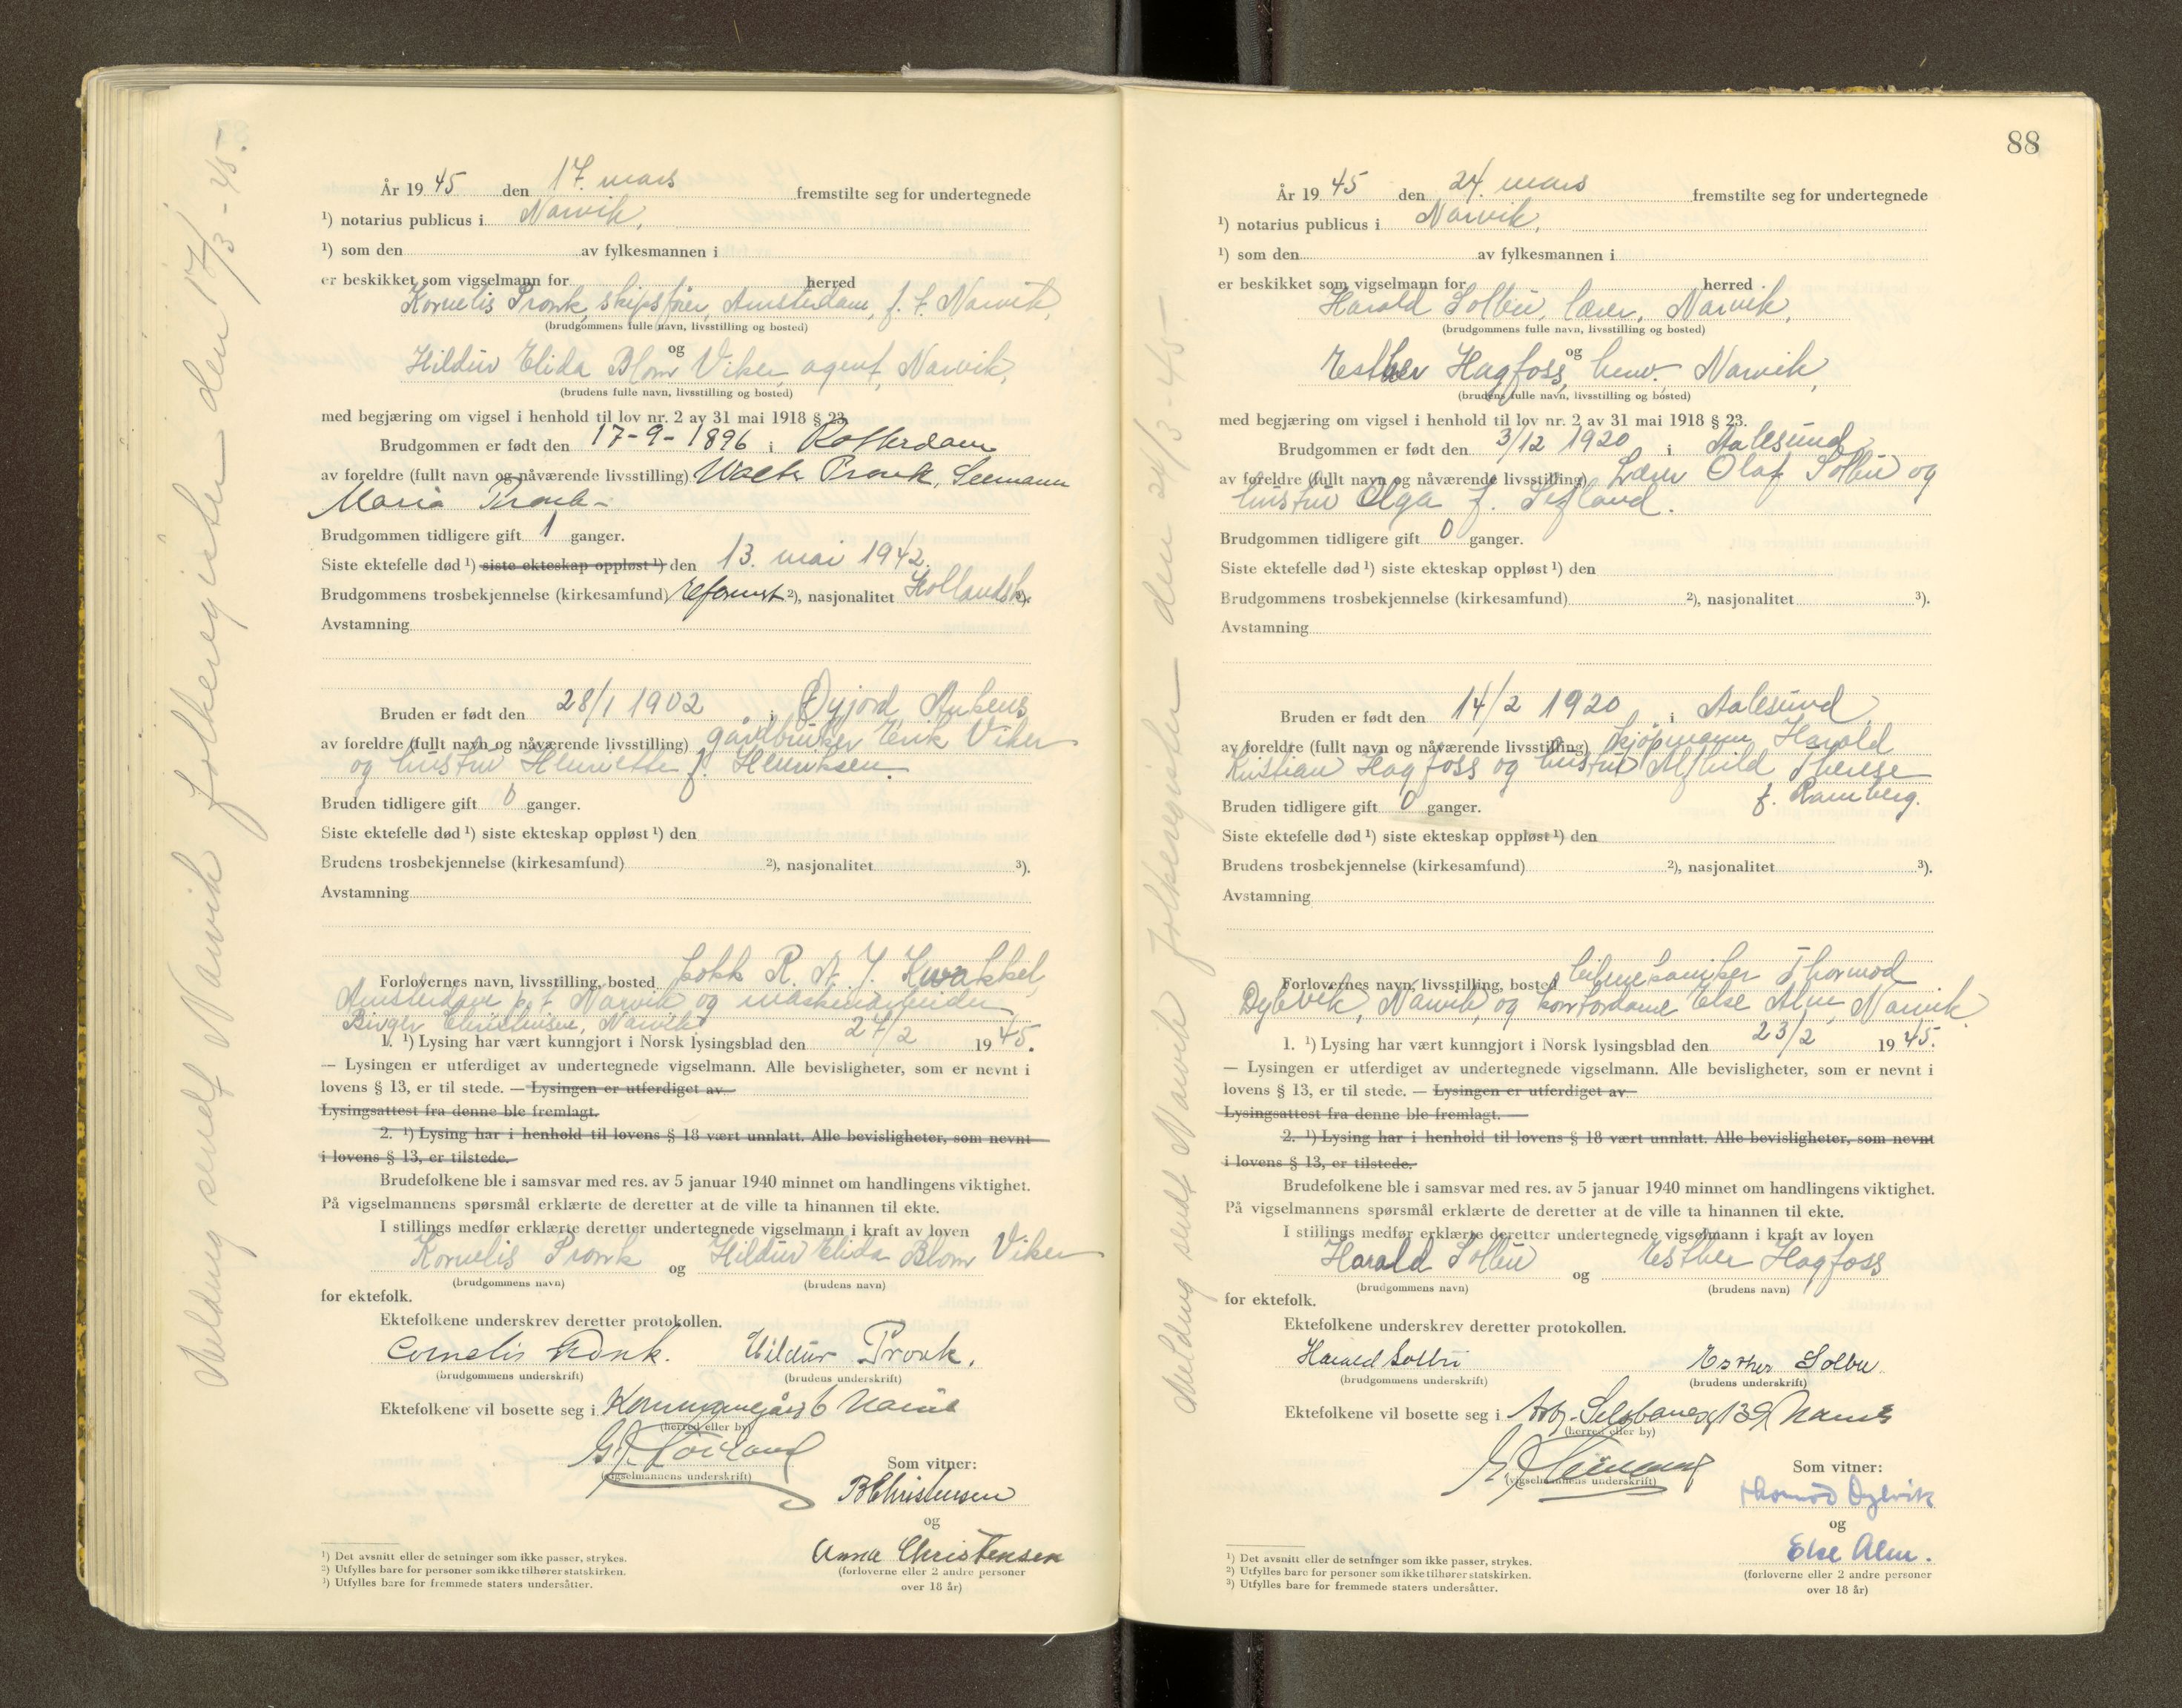 Melding sendt Narvik folkeregister den 17/3-45.
År 1945 den 17. mars fremstilte seg for undertegnede
¹) notarius publicus i Narvik,
¹) som den av fylkesmannen i
er beskikket som vigselmann for herred
Kornelis Pronk, skipsfører, Amsterdam, f. t. Narvik,
(brudgommens fulle navn, livsstilling og bosted)
og
Hildur Elida Blom Viken, agent, Narvik,
(brudens fulle navn, livsstilling og bosted)
med begjæring om vigsel i henhold til lov nr. 2 av 31 mai 1918 § 23.
Brudgommen er født den 17-9-1896 i Rotterdam
av foreldre (fullt navn og nåværende livsstilling) Pronk, Seemann
Maria Pronk-
Brudgommen tidligere gift 1 ganger.
Siste ektefelle død ¹) siste ekteskap oppløst ¹) den 13. mai 1942.
Brudgommens trosbekjennelse (kirkesamfund) ²), nasjonalitet Hollandsk ³).
Avstamning
Bruden er født den 28/1 1902 i Øyjord Ankenes
av foreldre (fullt navn og nåværende livsstilling) gårdbruker Erik Viken
og hustru Henriette f. Henriksen.
Bruden tidligere gift 0 ganger.
Siste ektefelle død ¹) siste ekteskap oppløst ¹) den
Brudens trosbekjennelse (kirkesamfund) ²), nasjonalitet ³).
Avstamning
Forlovernes navn, livsstilling, bosted kokk R. A. J. Kwakkel,
Amsterdam p. t. Narvik og maskinarbeider
Birger Christensen, Narvik
1. ¹) Lysing har vært kunngjort i Norsk lysingsblad den 27/2 1945.
— Lysingen er utferdiget av undertegnede vigselmann. Alle bevisligheter, som er nevnt i
lovens § 13, er til stede. — Lysingen er utferdiget av
Lysingsattest fra denne ble fremlagt.
2. ¹) Lysing har i henhold til lovens § 18 vært unnlatt. Alle bevisligheter, som nevnt
i lovens § 13, er tilstede.
Brudefolkene ble i samsvar med res. av 5 januar 1940 minnet om handlingens viktighet.
På vigselmannens spørsmål erklærte de deretter at de ville ta hinannen til ekte.
I stillings medfør erklærte deretter undertegnede vigselmann i kraft av loven
Kornelis Pronk og Hildur Elida Blom Viken
(brudgommens navn) (brudens navn)
for ektefolk.
Ektefolkene underskrev deretter protokollen.
Cornelis Pronk. Hildur Pronk.
(brudgommens underskrift) (brudens underskrift)
Ektefolkene vil bosette seg i Kongensgård 6 Narvik
(herred eller by)
(vigselmannens underskrift)
Som vitner:
B Christensen
og
Anna Christensen
(forloverne eller 2 andre personer
over 18 år)
¹) Det avsnitt eller de setninger som ikke passer, strykes.
²) Utfylles bare for personer som ikke tilhører statskirken.
³) Utfylles bare for fremmede staters undersåtter.
88
Melding sendt Narvik folkeregister den 24/3-45-
År 1945 den 24. mars fremstilte seg for undertegnede
¹) notarius publicus i Narvik,
¹) som den av fylkesmannen i
er beskikket som vigselmann for herred
Harald Solbu, lærer, Narvik,
(brudgommens fulle navn, livsstilling og bosted)
og
Esther Hagfoss, hemv. Narvik,
(brudens fulle navn, livsstilling og bosted)
med begjæring om vigsel i henhold til lov nr. 2 av 31 mai 1918 § 23.
Brudgommen er født den 3/12 1920 i Aalesund
av foreldre (fullt navn og nåværende livsstilling) Lærer Olaf Solbu og
hustru Olga f. Sefland.
Brudgommen tidligere gift 0 ganger.
Siste ektefelle død ¹) siste ekteskap oppløst ¹) den
Brudgommens trosbekjennelse (kirkesamfund) ²), nasjonalitet ³).
Avstamning
Bruden er født den 14/2 1920 i Aalesund,
av foreldre (fullt navn og nåværende livsstilling) kjøpmann Harald
Kristian Hagfoss og hustru Alfhild Therese
f. Ramberg.
Bruden tidligere gift 0 ganger.
Siste ektefelle død ¹) siste ekteskap oppløst ¹) den
Brudens trosbekjennelse (kirkesamfund) ²), nasjonalitet ³).
Avstamning
Forlovernes navn, livsstilling, bosted bilmekaniker Thormod
Dybvik, Narvik, og kontordame Else Alm, Narvik.
1. ¹) Lysing har vært kunngjort i Norsk lysingsblad den 23/2 1945.
— Lysingen er utferdiget av undertegnede vigselmann. Alle bevisligheter, som er nevnt i
lovens § 13, er til stede. — Lysingen er utferdiget av
Lysingsattest fra denne ble fremlagt. —
2. ¹) Lysing har i henhold til lovens § 18 vært unnlatt. Alle bevisligheter, som nevnt
i lovens § 13, er tilstede.
Brudefolkene ble i samsvar med res. av 5 januar 1940 minnet om handlingens viktighet.
På vigselmannens spørsmål erklærte de deretter at de ville ta hinannen til ekte.
I stillings medfør erklærte deretter undertegnede vigselmann i kraft av loven
Harald Solbu og Esther Hagfoss
(brudgommens navn) (brudens navn)
for ektefolk.
Ektefolkene underskrev deretter protokollen.
Harald Solbu Esther Solbu
(brudgommens underskrift) (brudens underskrift)
Ektefolkene vil bosette seg i Narvik
(herred eller by)
(vigselmannens underskrift)
Som vitner:
Thormod Dybvik
og
Else Alm.
(forloverne eller 2 andre personer
over 18 år)
¹) Det avsnitt eller de setninger som ikke passer, strykes.
²) Utfylles bare for personer som ikke tilhører statskirken.
³) Utfylles bare for fremmede staters undersåtter.